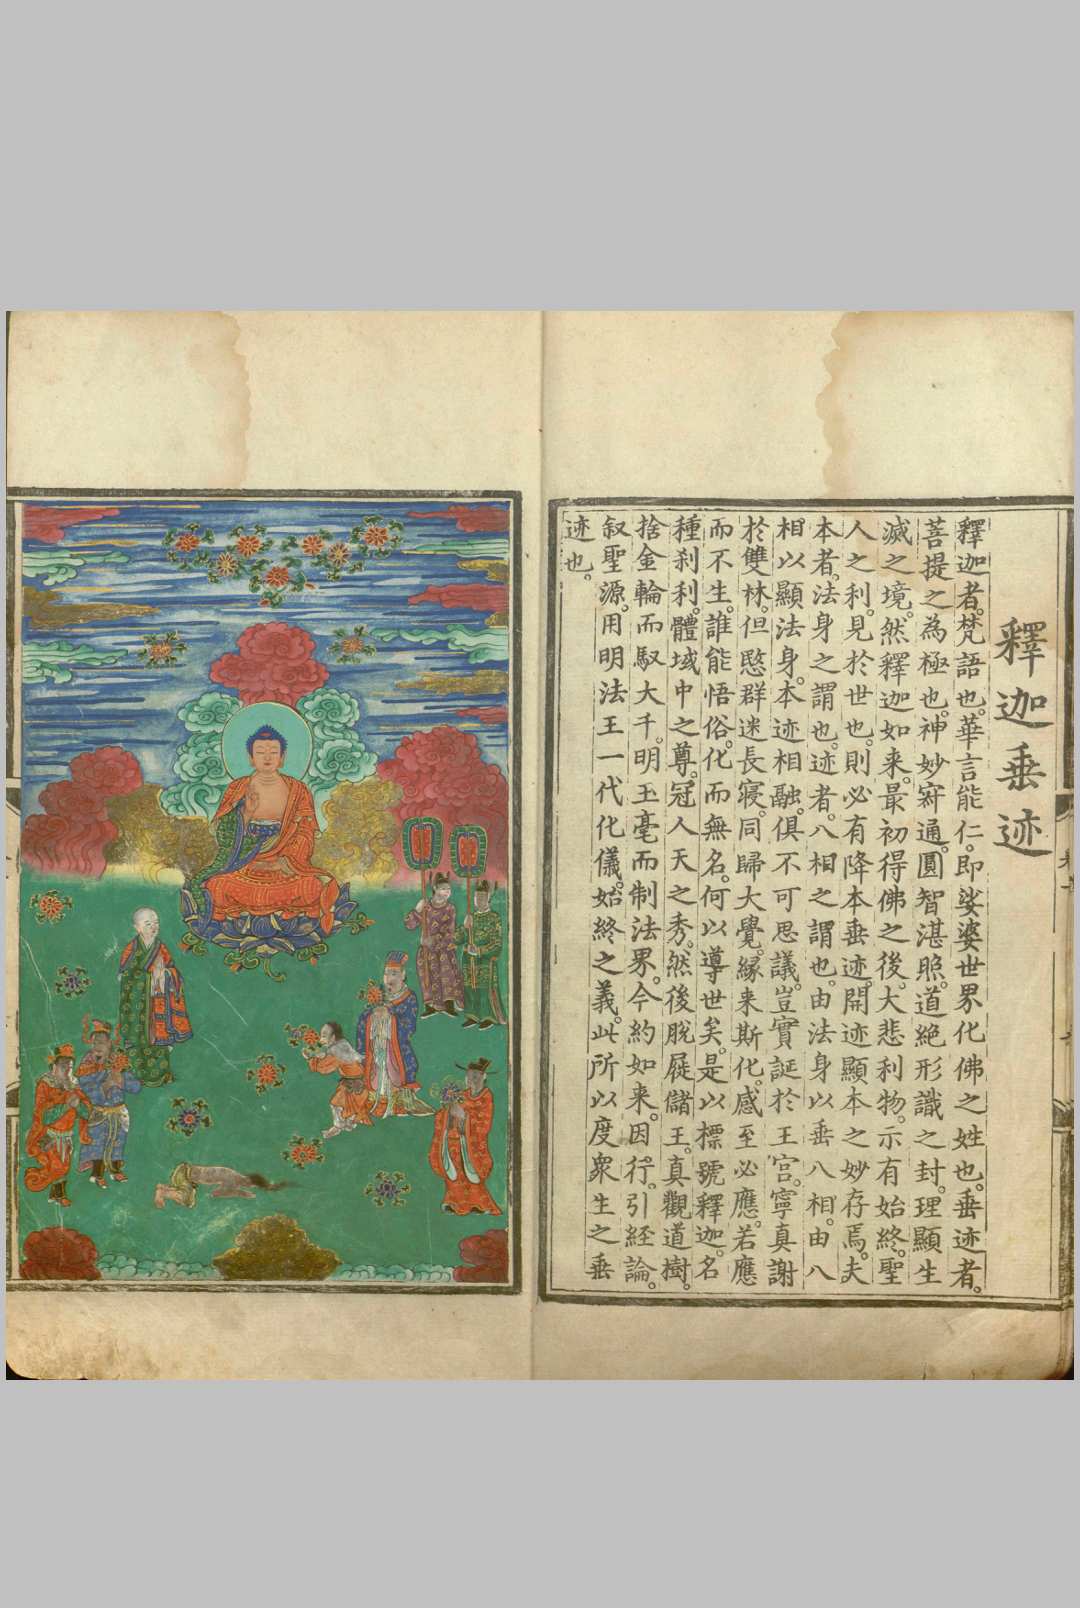 釋迦垂迹
釋迦者。梵語也。華言能仁。即娑婆世界化佛之姓也。垂迹者。
菩提之為極也。神妙寂通。圓智湛照。道絶形識之封。理顯生
滅之境。然釋迦如来。最初得佛之後。大悲利物。示有始終。聖
人之利。見於世也。則必有降本垂迹。開迹顯本之妙存焉。夫
本者。法身之謂也。迹者。八相之謂也。由法身以垂八相。由八
相以顯法身。本迹相融。俱不可思議。豈實誕於王宫。寧真謝
於雙林。但愍群迷長寢。同歸大覺。縁来斯化。感至必應。若應
而不生。誰能悟俗。化而無名。何以導世矣。是以標號釋迦。名
種刹利。體域中之尊。冠人天之秀。然後脫屣儲王。真觀道樹。
捨金輪而馭大千。明玉毫而制法界。今約如来。因行。引経論。
叙聖源。用明法王一代化儀。始終之義。此所以度衆生之垂
迹也。